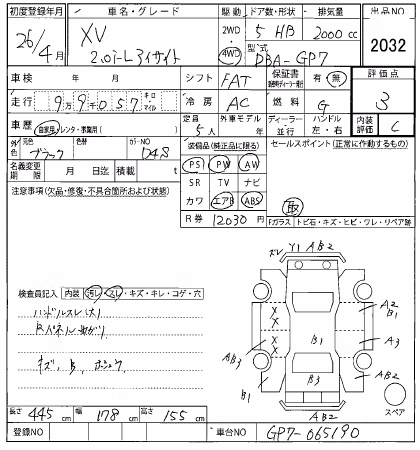 初度登録年月 車名・グレード 駆動 ドア数・形状 排気量 出品NO
26年 4月 XV 2.0i-L アイサイト 2WD 4WD 5 HB 2000 cc 2032
型式 DBA-GP7
車検 年 月 シフト FAT 保証書 有 無 評価点
走行 9万9千057 キロ マイル 冷房 AC 燃料 G 3
車歴 自家用 レンタ・事業用( ) 定員 5人 外車モデル 年 ディーラー 並行 ハンドル 左・右 内装評価 C
外色 元色 ブラック 色替 カラーNO D4S 装備品(純正品に限る) セールスポイント(正常に動作するもの)
名義変更期限 月 日迄 積載 t PS PW AW
SR TV ナビ
注意事項(欠品・修復・不具合箇所および状態) カワ エアB ABS
R券 12030円 取 Fガラス トビ石・キズ・ヒビ・ワレ・リペア跡
検査員記入 内装 汚レ・スレ・キズ・キレ・コゲ・穴
ハンドルスレ(大)
Rパネル曲がり
キズ, B,
ズレ Y1 AB2
A2
B1
X
X
X
X
B1
A3
AB3
B1
B3
A2
AB2
スペア
長さ 445 cm 幅 178 cm 高さ 155 cm
登録NO 車台NO GP7-065190